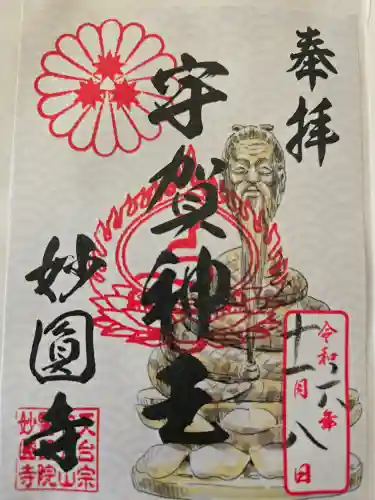 奉拝
令和六年
十一月八日
宇賀神王
妙圓寺
天台宗
山
院
妙圓寺